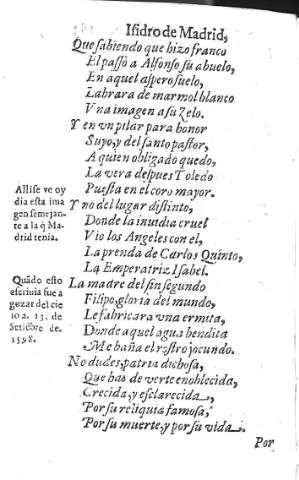 Isidro de Madrid,
Que sabiendo que hizo franco
El passo a Alfonso su abuelo,
En aquel aspero suelo,
Labrara de marmol blanco
Vna imagen a su zelo.
Y en vn pilar para honor
Suyo, y del santo pastor,
A quien obligado quedo,
La vera despues Toledo
Puesta en el coro mayor.
Y no del lugar distinto,
Donde la inuidia cruel
Vio los Angeles con el,
La prenda de Carlos Quinto,
La Emperatriz Isabel.
La madre del sin segundo
Filipo, gloria del mundo,
Le fabricara vna ermita,
Donde aquel agua bendita
Me baña el rostro jocundo.
No dudes, patria dichosa,
Que has de verte enoblecida,
Crecida, y esclarecida,
Por su reliquia famosa,
Por su muerte, y por su vida.
Por
Alli se ve oy
dia esta ima
gen semejan
te a la q̃ Ma
drid tenia.
Quãdo esto
escriuia fue a
gozar del cie
lo a. 13. de
Setiẽbre de.
1598.